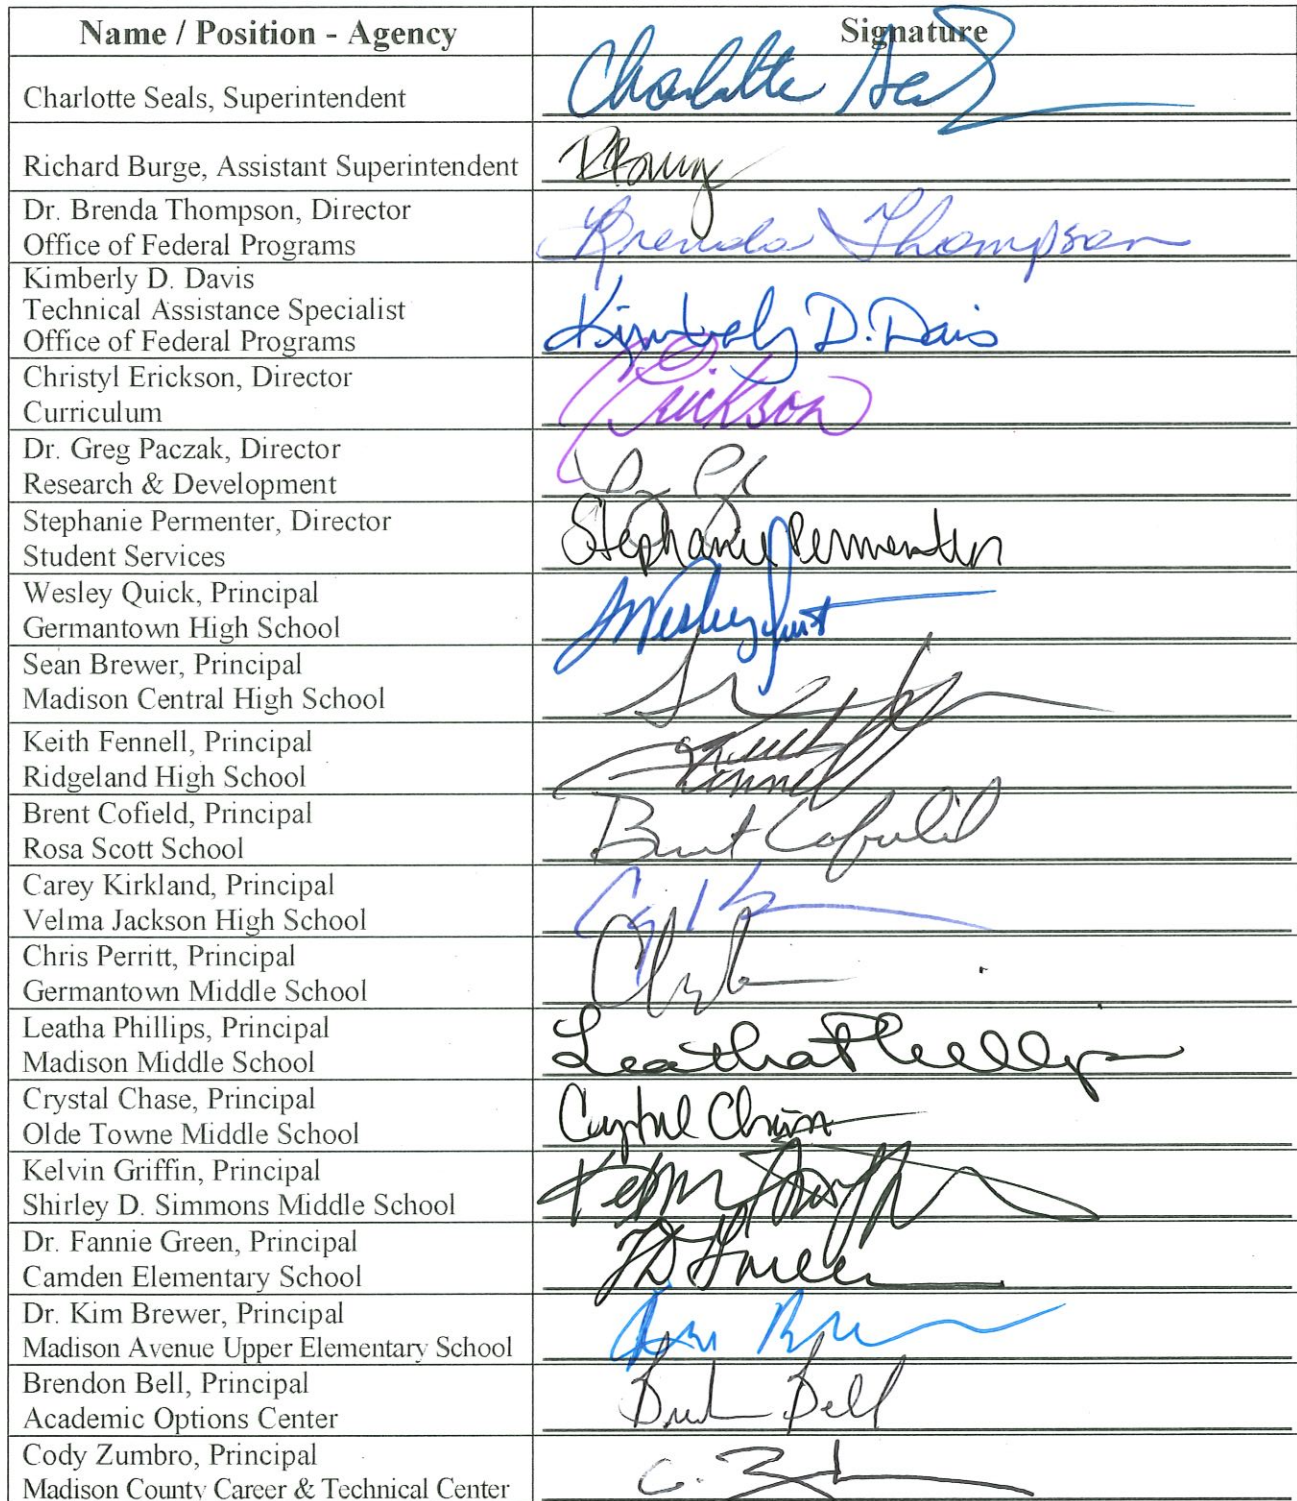 Name / Position - Agency Signature
Charlotte Seals, Superintendent Charlotte Seals
Richard Burge, Assistant Superintendent
Dr. Brenda Thompson, Director
Office of Federal Programs Brenda Thompson
Kimberly D. Davis
Technical Assistance Specialist
Office of Federal Programs Kimberly D. Davis
Christyl Erickson, Director
Curriculum Erickson
Dr. Greg Paczak, Director
Research & Development
Stephanie Permenter, Director
Student Services Stephanie Permenter
Wesley Quick, Principal
Germantown High School Wesley Quick
Sean Brewer, Principal
Madison Central High School
Keith Fennell, Principal
Ridgeland High School Keith Fennell
Brent Cofield, Principal
Rosa Scott School Brent Cofield
Carey Kirkland, Principal
Velma Jackson High School
Chris Perritt, Principal
Germantown Middle School
Leatha Phillips, Principal
Madison Middle School Leatha Phillips
Crystal Chase, Principal
Olde Towne Middle School Crystal Chase
Kelvin Griffin, Principal
Shirley D. Simmons Middle School Kelvin Griffin
Dr. Fannie Green, Principal
Camden Elementary School FD Green
Dr. Kim Brewer, Principal
Madison Avenue Upper Elementary School
Brendon Bell, Principal
Academic Options Center Bell
Cody Zumbro, Principal
Madison County Career & Technical Center